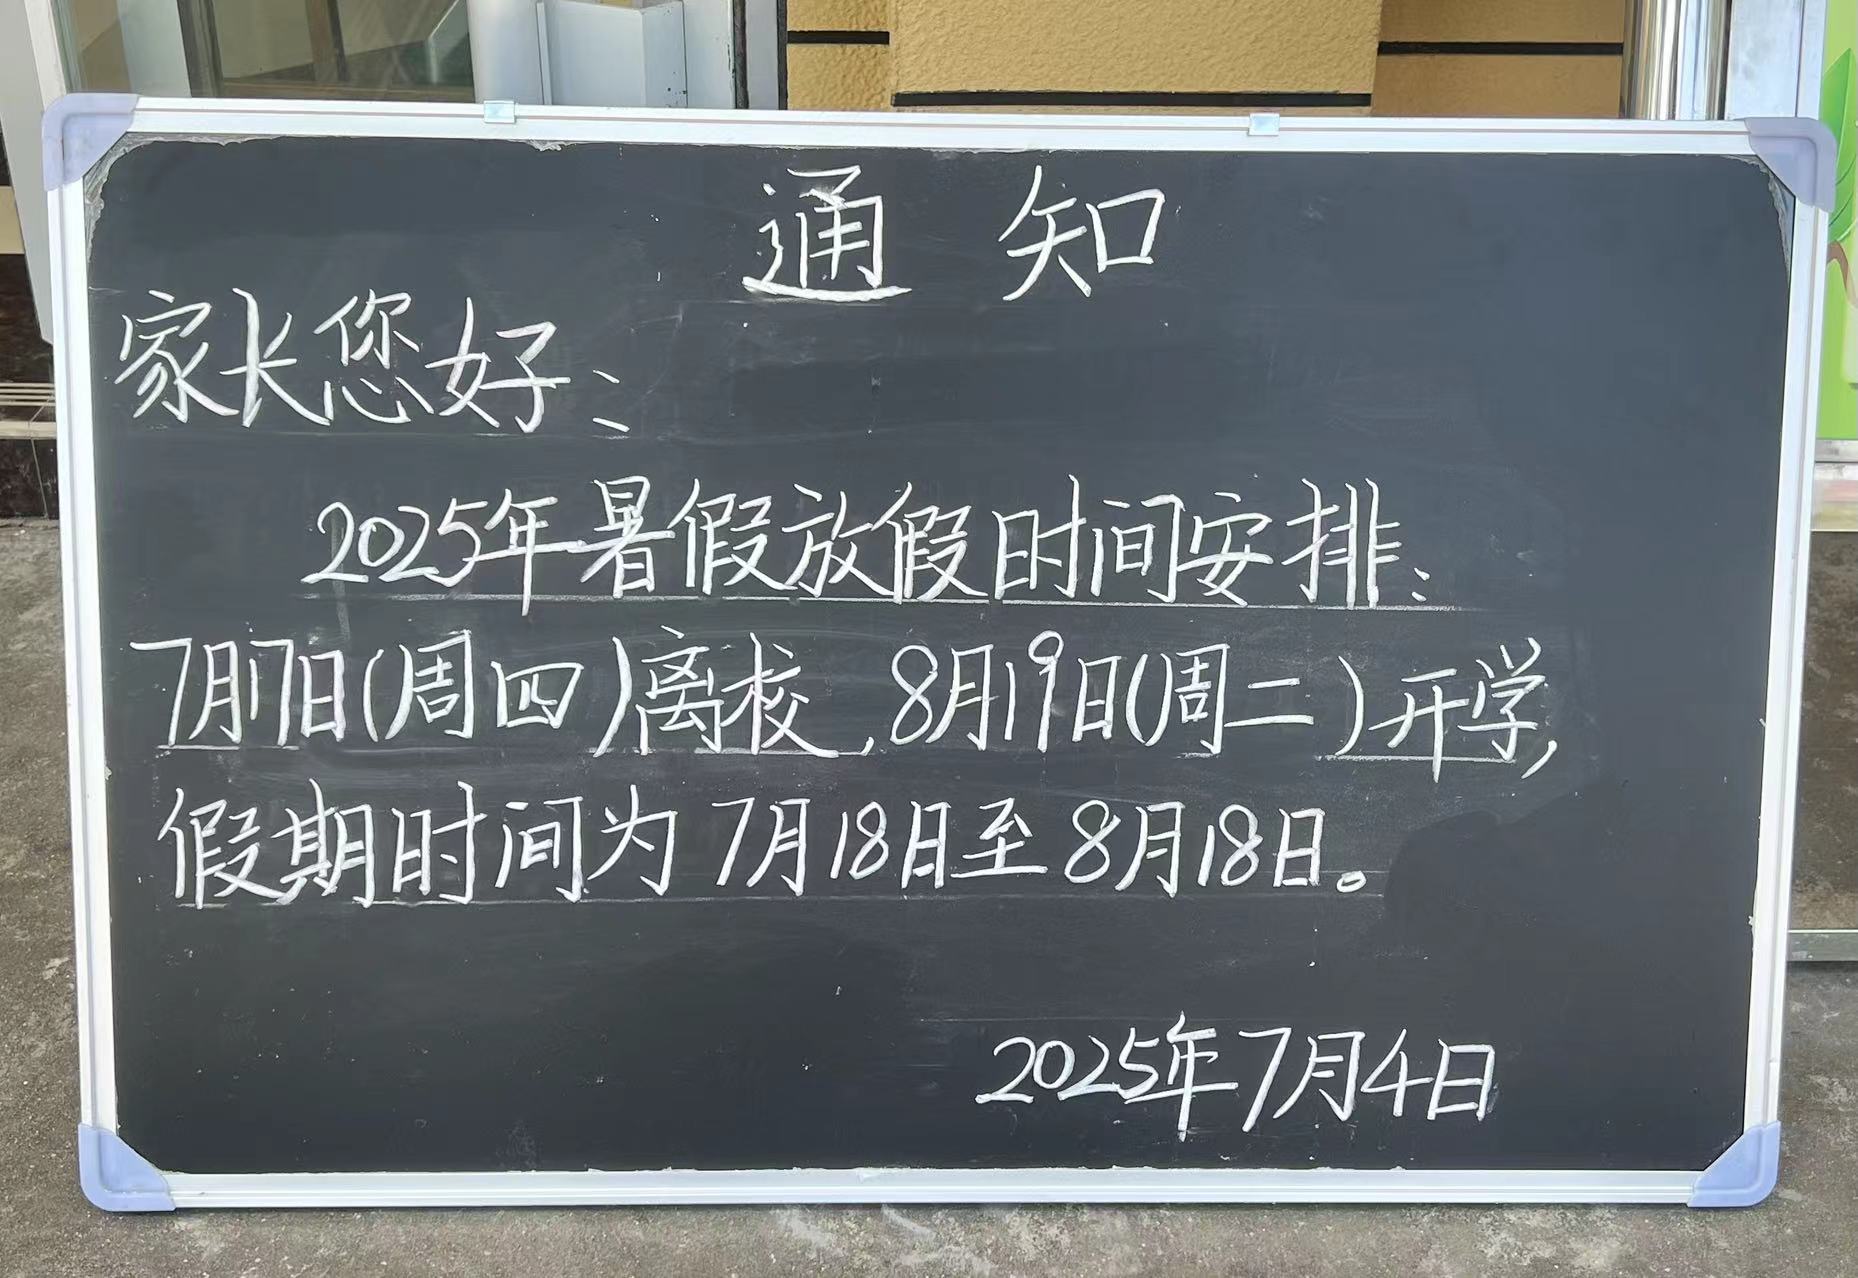 通知
家长您好：
2025年暑假放假时间安排：
7月17日(周四)离校,8月19日(周二)开学,
假期时间为7月18日至8月18日。
2025年7月4日